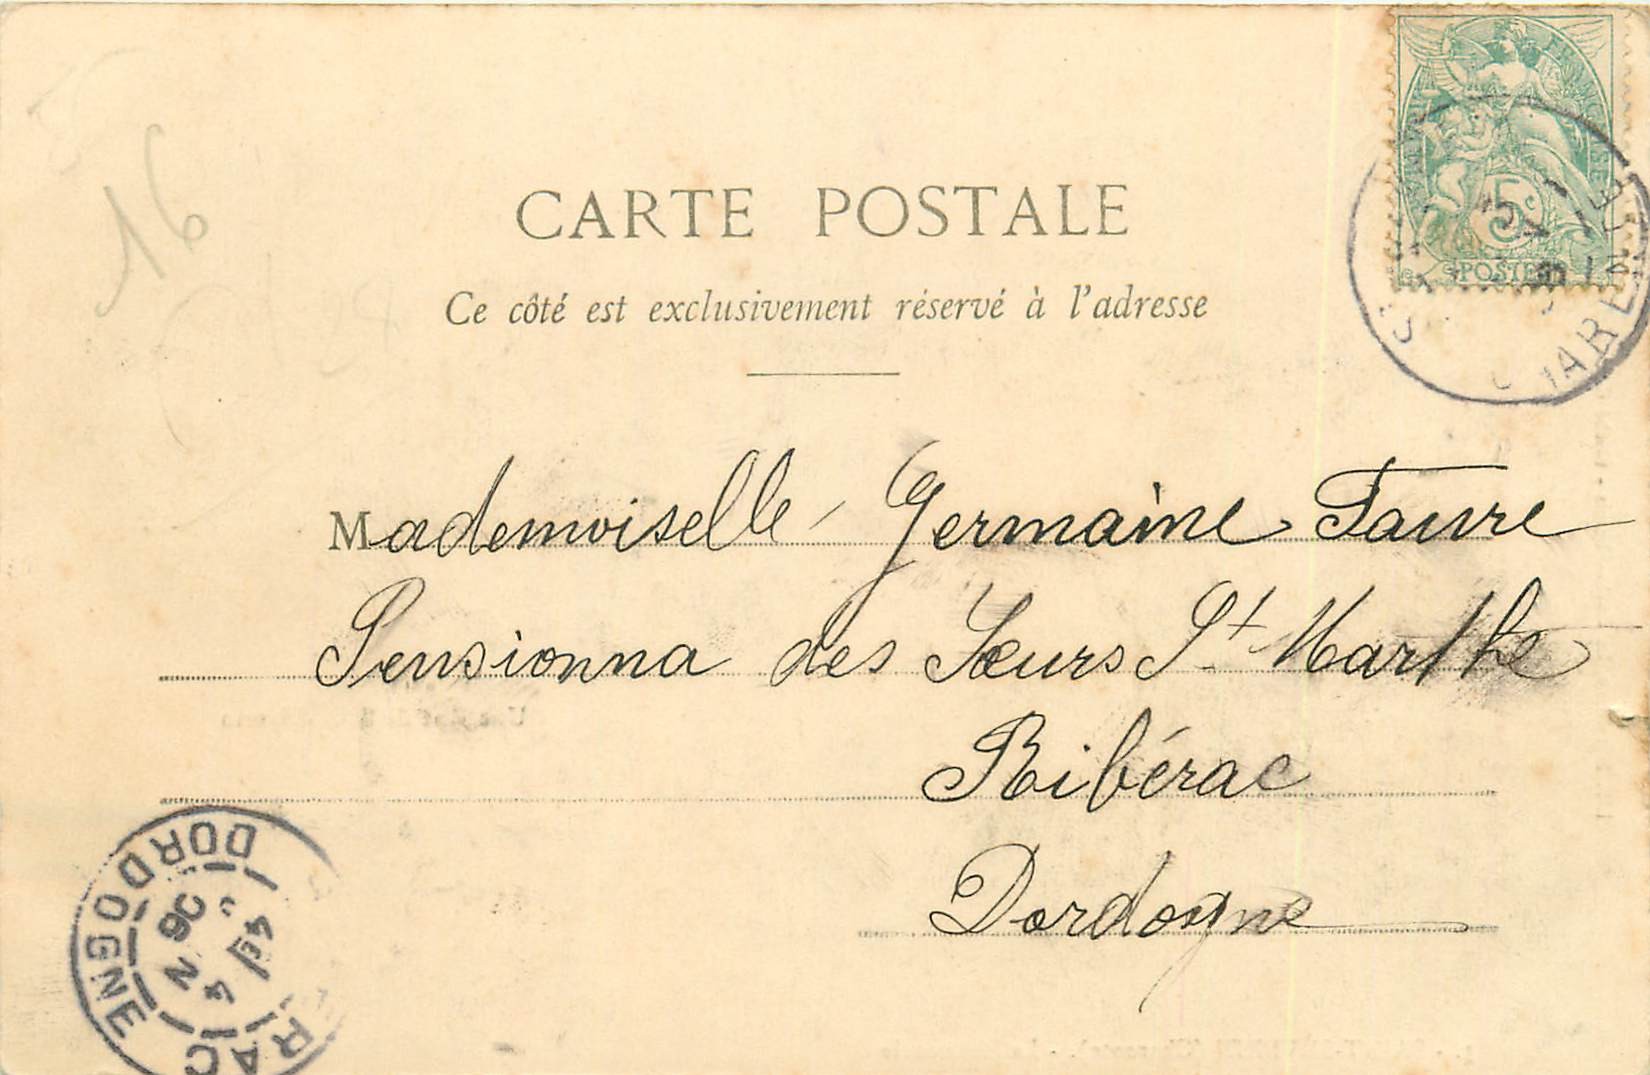 16
CARTE POSTALE
Ce côté est exclusivement réservé à l'adresse
5c
POSTES
Mademoiselle Germaine Faure
Pensionna des Sœurs St Marthe
Ribérac
Dordogne
DORDOGNE
4
06